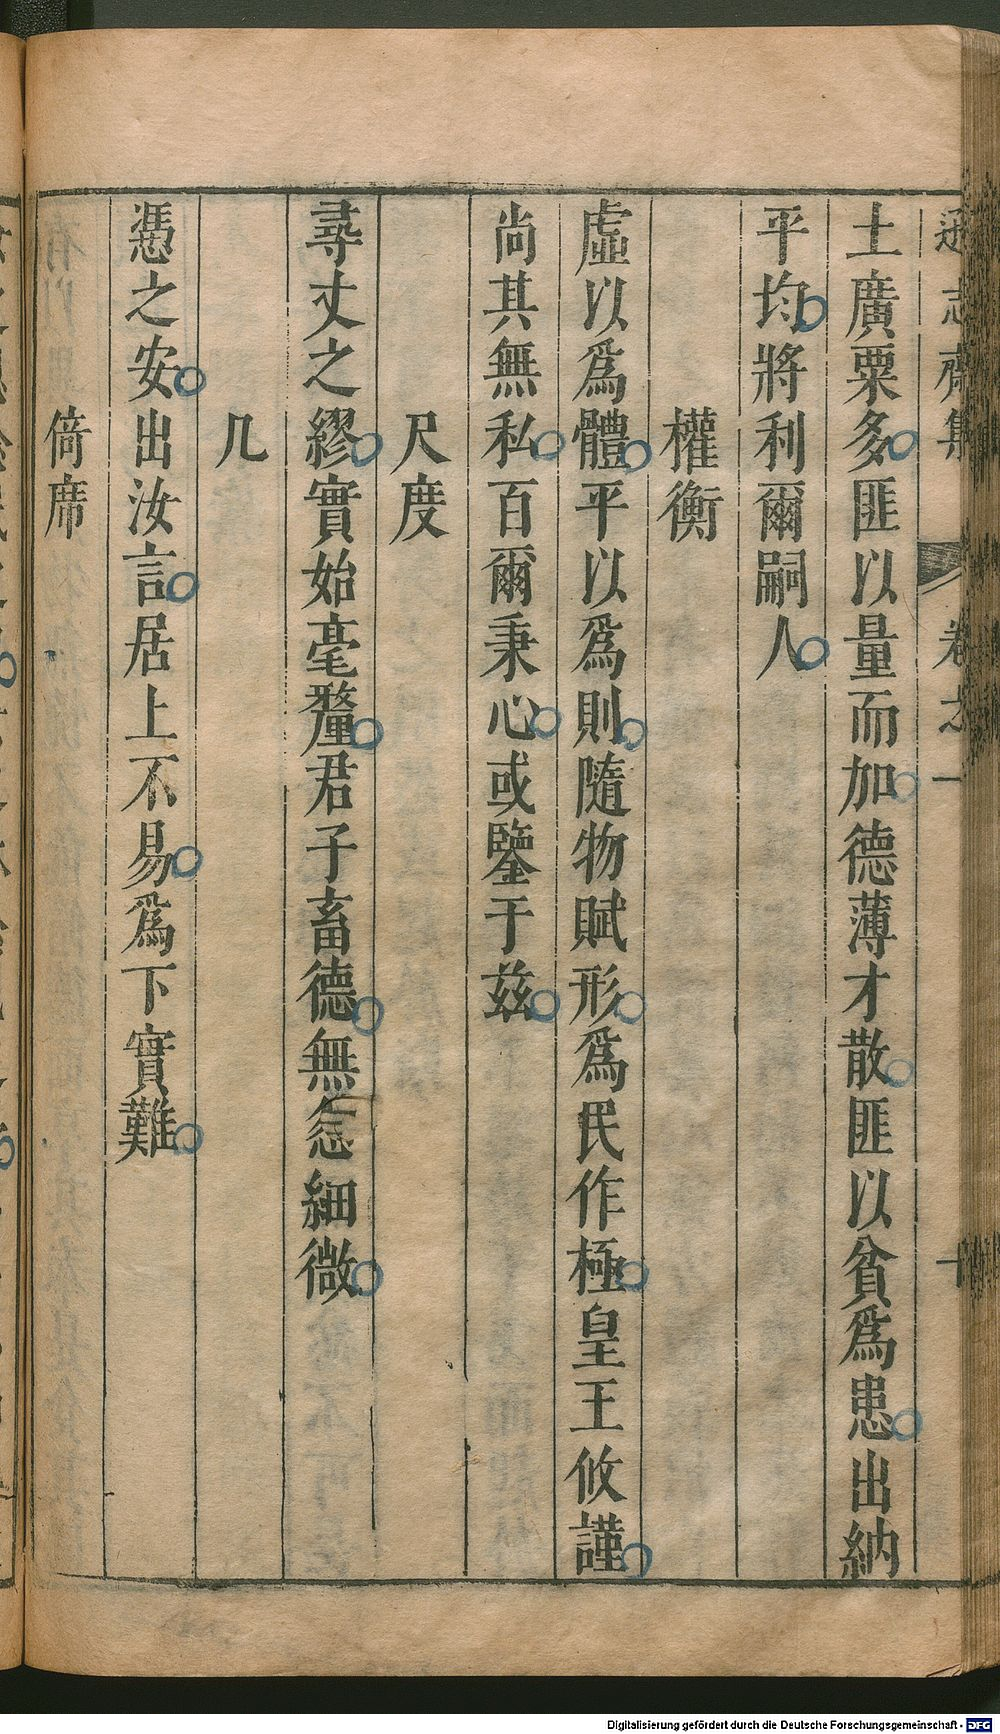 遜志齋集 卷之一 十
土廣粟多匪以量而加德薄才散匪以貧爲患出納
平均將利爾嗣人
權衡
虛以爲體平以爲則隨物賦形爲民作極皇王攸謹
尚其無私百爾秉心或鑒于茲
尺度
尋丈之繆實始毫釐君子畜德無怠細微
几
憑之安出汝言居上不易爲下實難
倚席
Digitalisierung gefördert durch die Deutsche Forschungsgemeinschaft - DFG